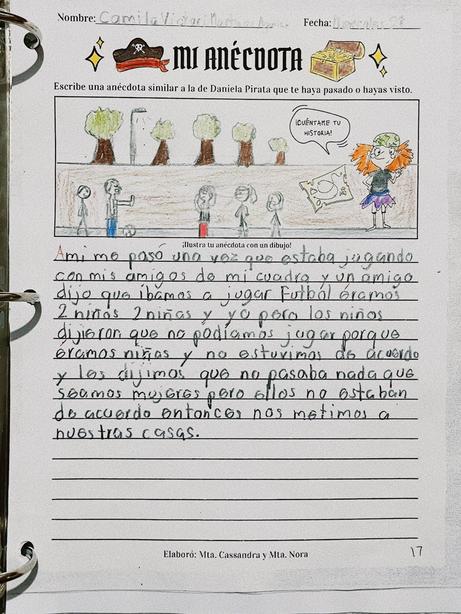 Nombre: Camila Victori Martinez Fecha: Miercoles 28
MI ANÉCDOTA
Escribe una anécdota similar a la de Daniela Pirata que te haya pasado o hayas visto.
¡CUÉNTAME TU
HISTORIA!
¡Ilustra tu anécdota con un dibujo!
Ami me pasó una vez que estaba jugando
con mis amigos de mi cuadra y un amigo
dijo que íbamos a jugar Futból éramos
2 niños 2 niñas y yo pero los niños
dijieron que no podíamos jugar porque
éramos niñas y no estuvimos de acuerdo
y les dijimos que no pasaba nada que
seamos mujeres pero ellos no estaban
de acuerdo entonces nos metimos a
nuestras casas.
Elaboró: Mta. Cassandra y Mta. Nora
17